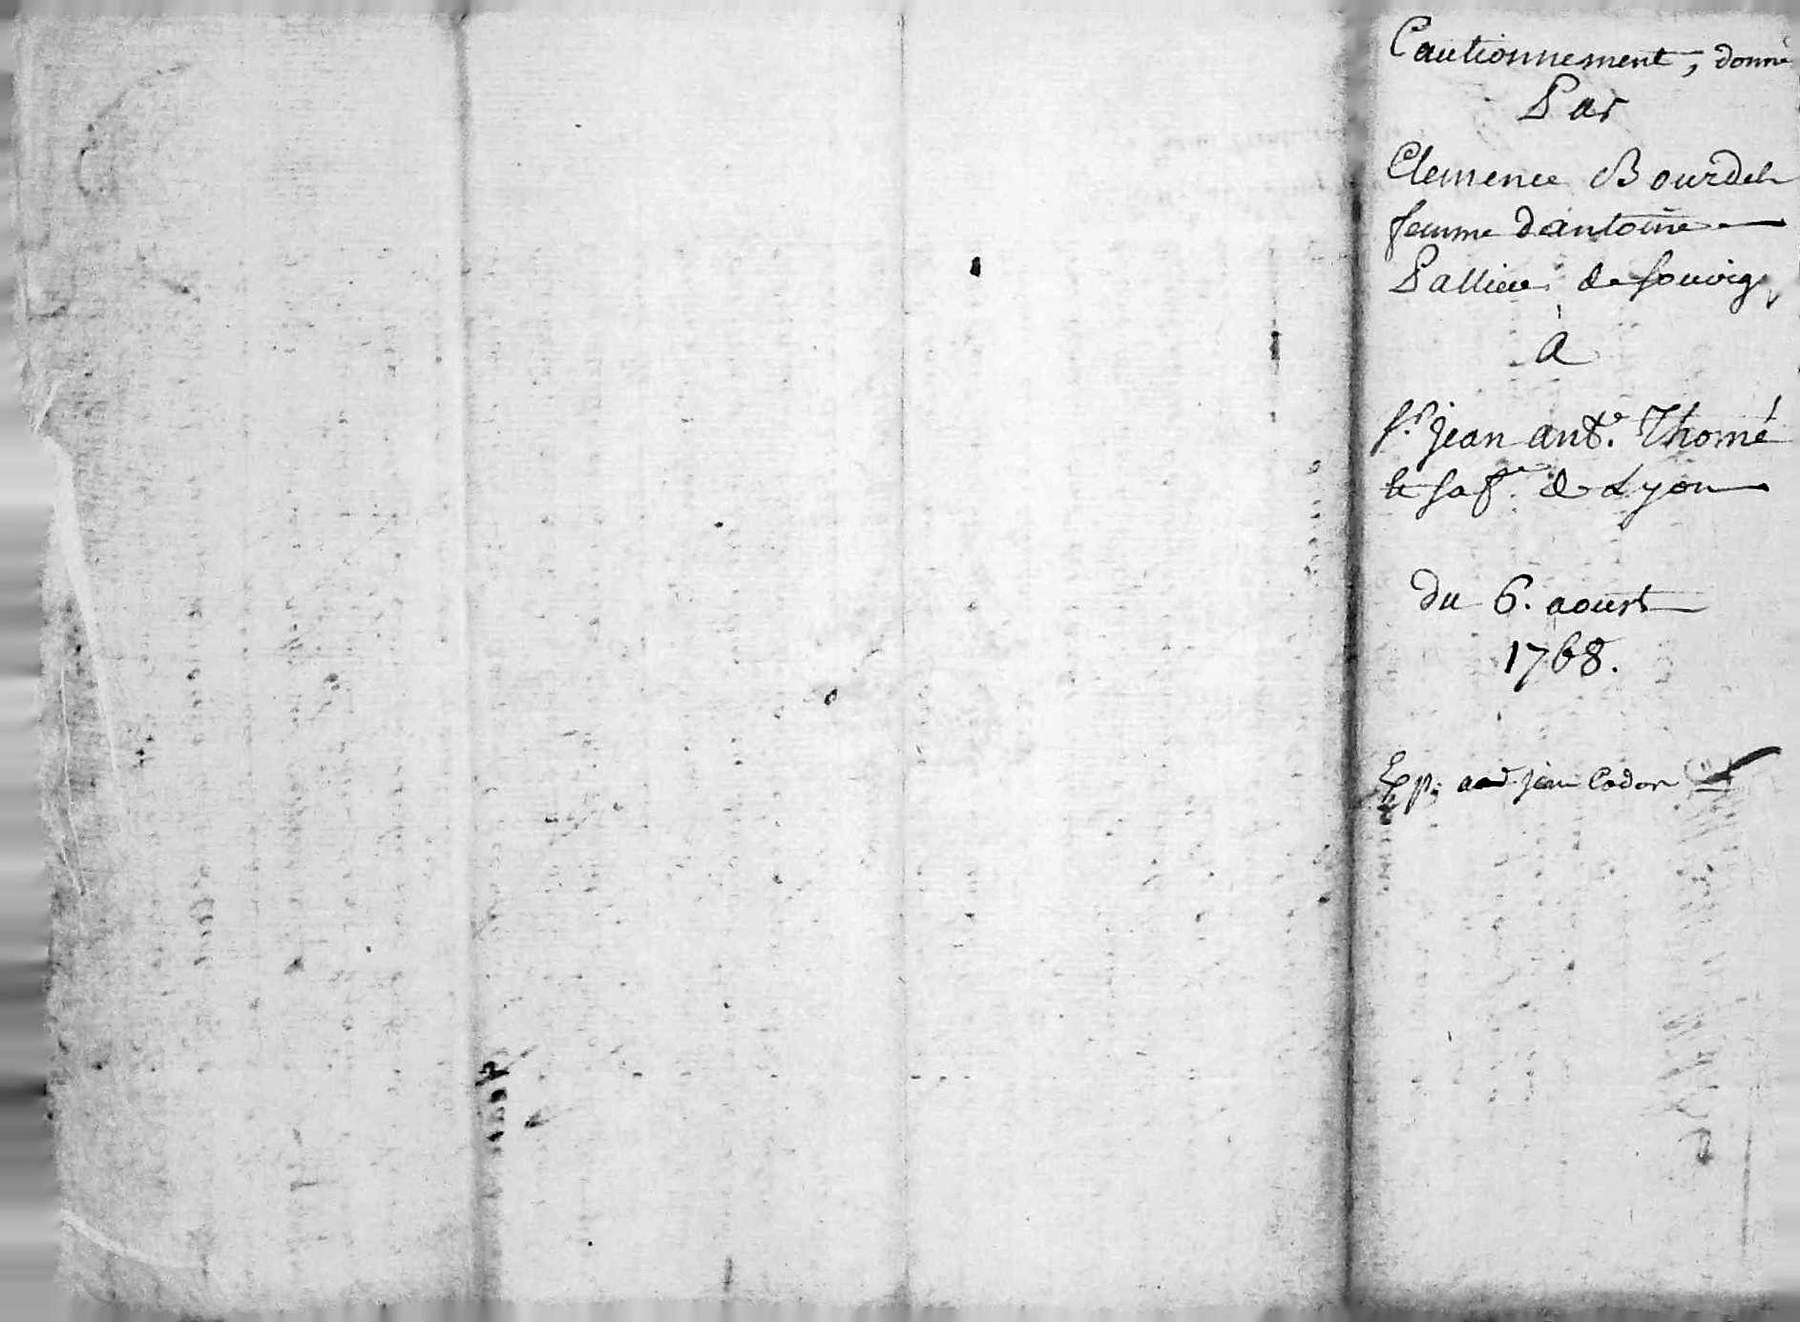 Cautionnement, donné
Par
Clemence Bourdel
femme dantoine
Pallier de souvig
à
Sr. jean ante. Thomé
de Lyon
du 6. aoust
1768.
Exp. jean Cador